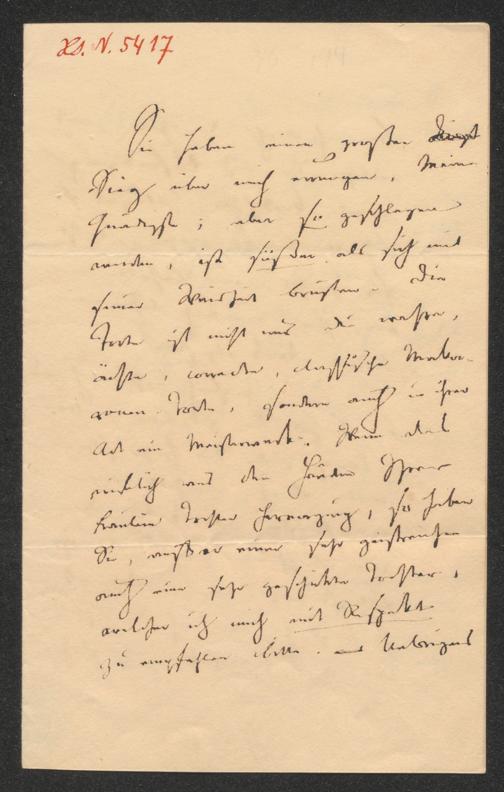 Hs. N. 5417
Sie haben einen großen
Sieg über mich errungen, meine
Gnädigste; aber so geschlagen
werden, ist süßer als sich mit
seiner Weisheit brüsten. Die
Torte ist nicht nur die wahre,
ächte, correcte, classische Macca-
ronen-Torte, sondern auch in ihrer
Art ein Meisterwerk. Wenn das
wirklich aus den Händen Ihrer
Fräulein Tochter hervorging, so haben
Sie, außer einer sehr geistreichen
auch eine sehr geschickte Tochter,
welcher ich mich mit Respekt
zu empfehlen bitte. Uebrigens